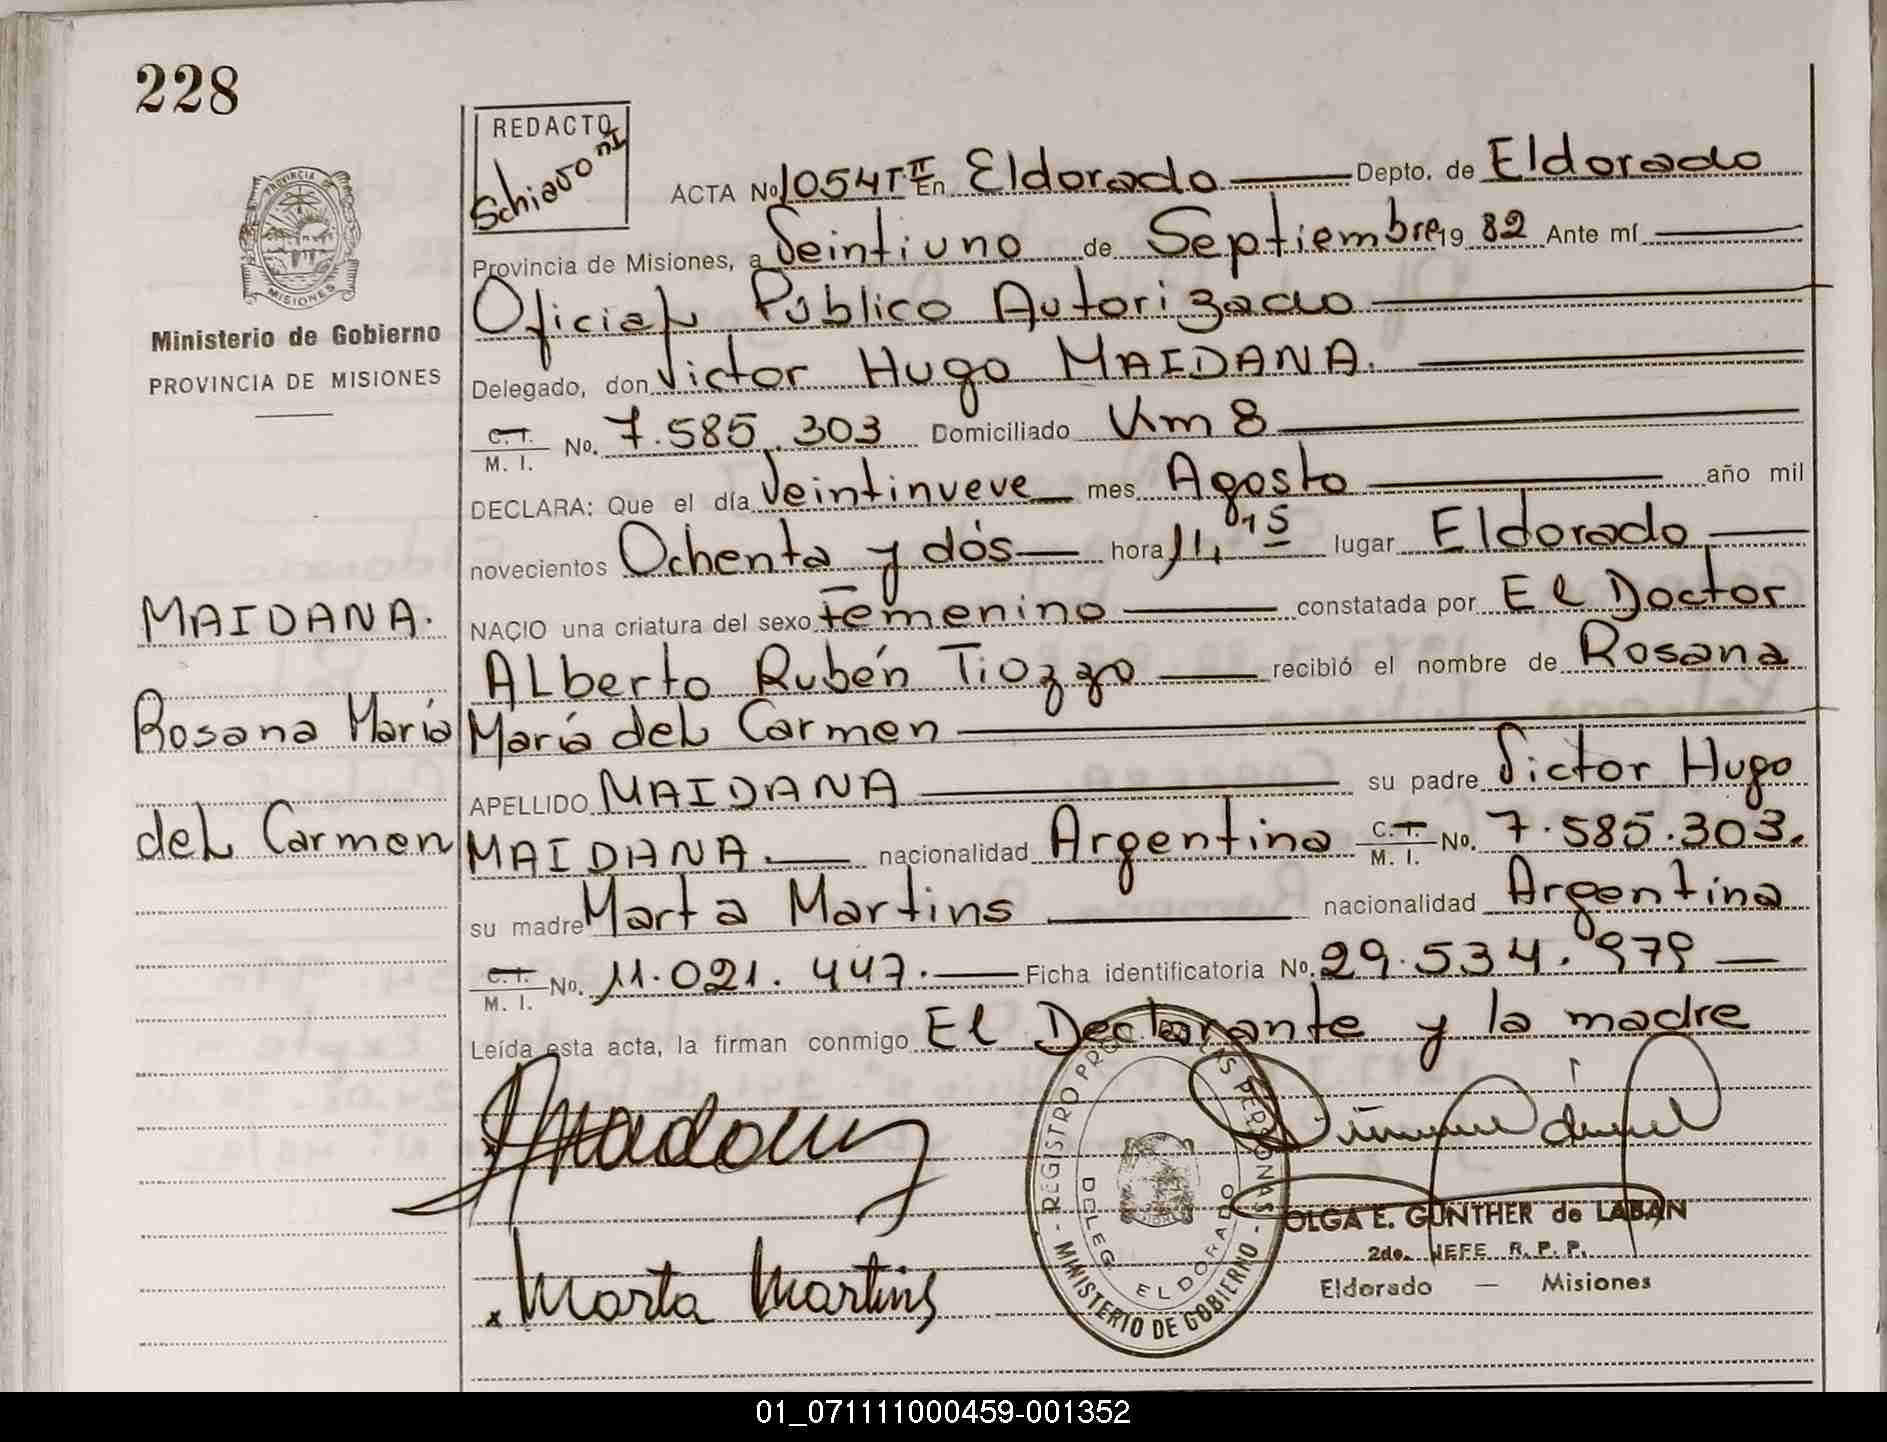 228
REDACTO
Schiavoni
ACTA No 1054 T II En Eldorado Depto. de Eldorado
Provincia de Misiones, a Veintiuno de Septiembre 19 82 Ante mí
Oficial Público Autorizado
Delegado, don Victor Hugo MAIDANA.
C.T. M. I. No. 7.585.303 Domiciliado Km 8
DECLARA: Que el día Veintinueve mes Agosto año mil
novecientos Ochenta y dós hora 11,15 lugar Eldorado
NACIO una criatura del sexo femenino constatada por El Doctor
Alberto Rubén Tiozzo recibió el nombre de Rosana
María del Carmen
APELLIDO MAIDANA su padre Victor Hugo
MAIDANA. nacionalidad Argentina C.T. M. I. No. 7.585.303.
su madre Marta Martins nacionalidad Argentina
C.T. M. I. No. 11.021.447. Ficha identificatoria No. 29.534.979
Leída esta acta, la firman conmigo El Declarante y la madre
PROVINCIA DE
MISIONES
Ministerio de Gobierno
PROVINCIA DE MISIONES
MAIDANA.
Rosana María
del Carmen
Marta Martins
REGISTRO PROV. LAS PERSONAS
MINISTERIO DE GOBIERNO
DELEG. ELDORADO
OLGA E. GUNTHER de LABAN
2do. JEFE R. P. P.
Eldorado — Misiones
01_071111000459-001352